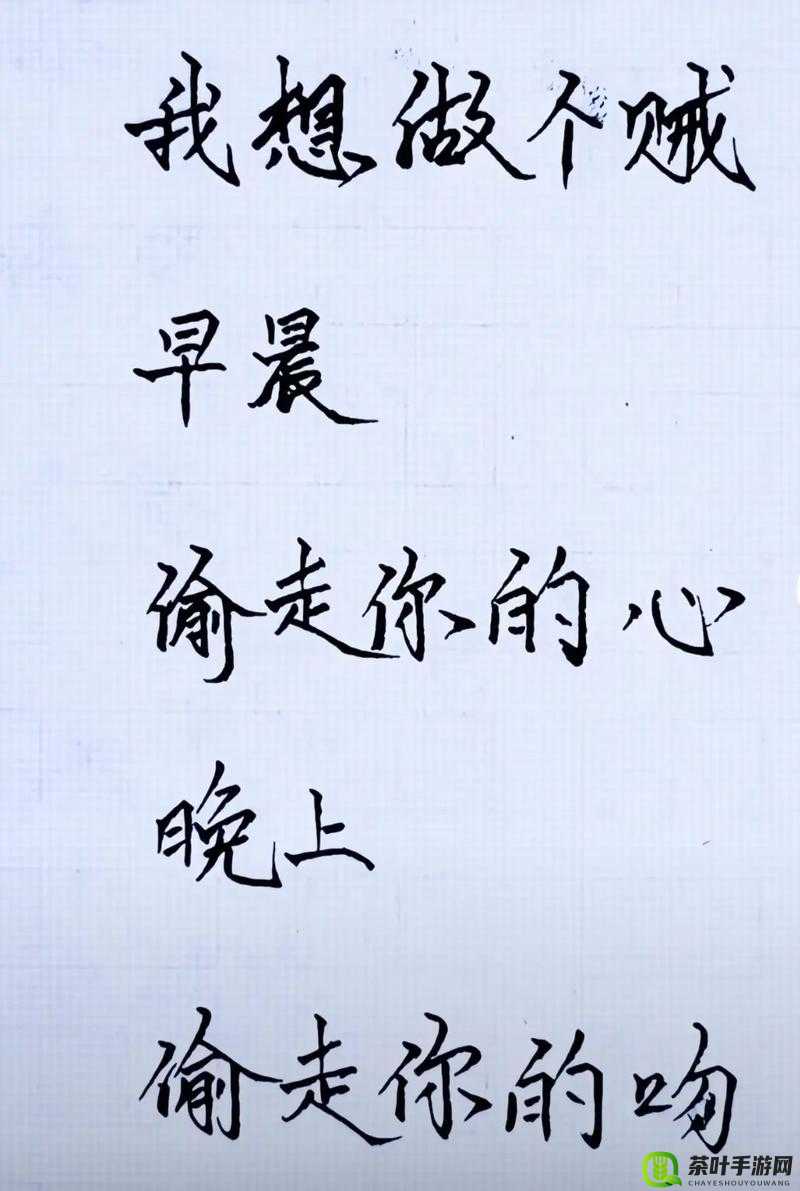 我想做个贼
早晨
偷走你的心
晚上
偷走你的吻
茶叶手游网
CHAYESHOUYOUWANG